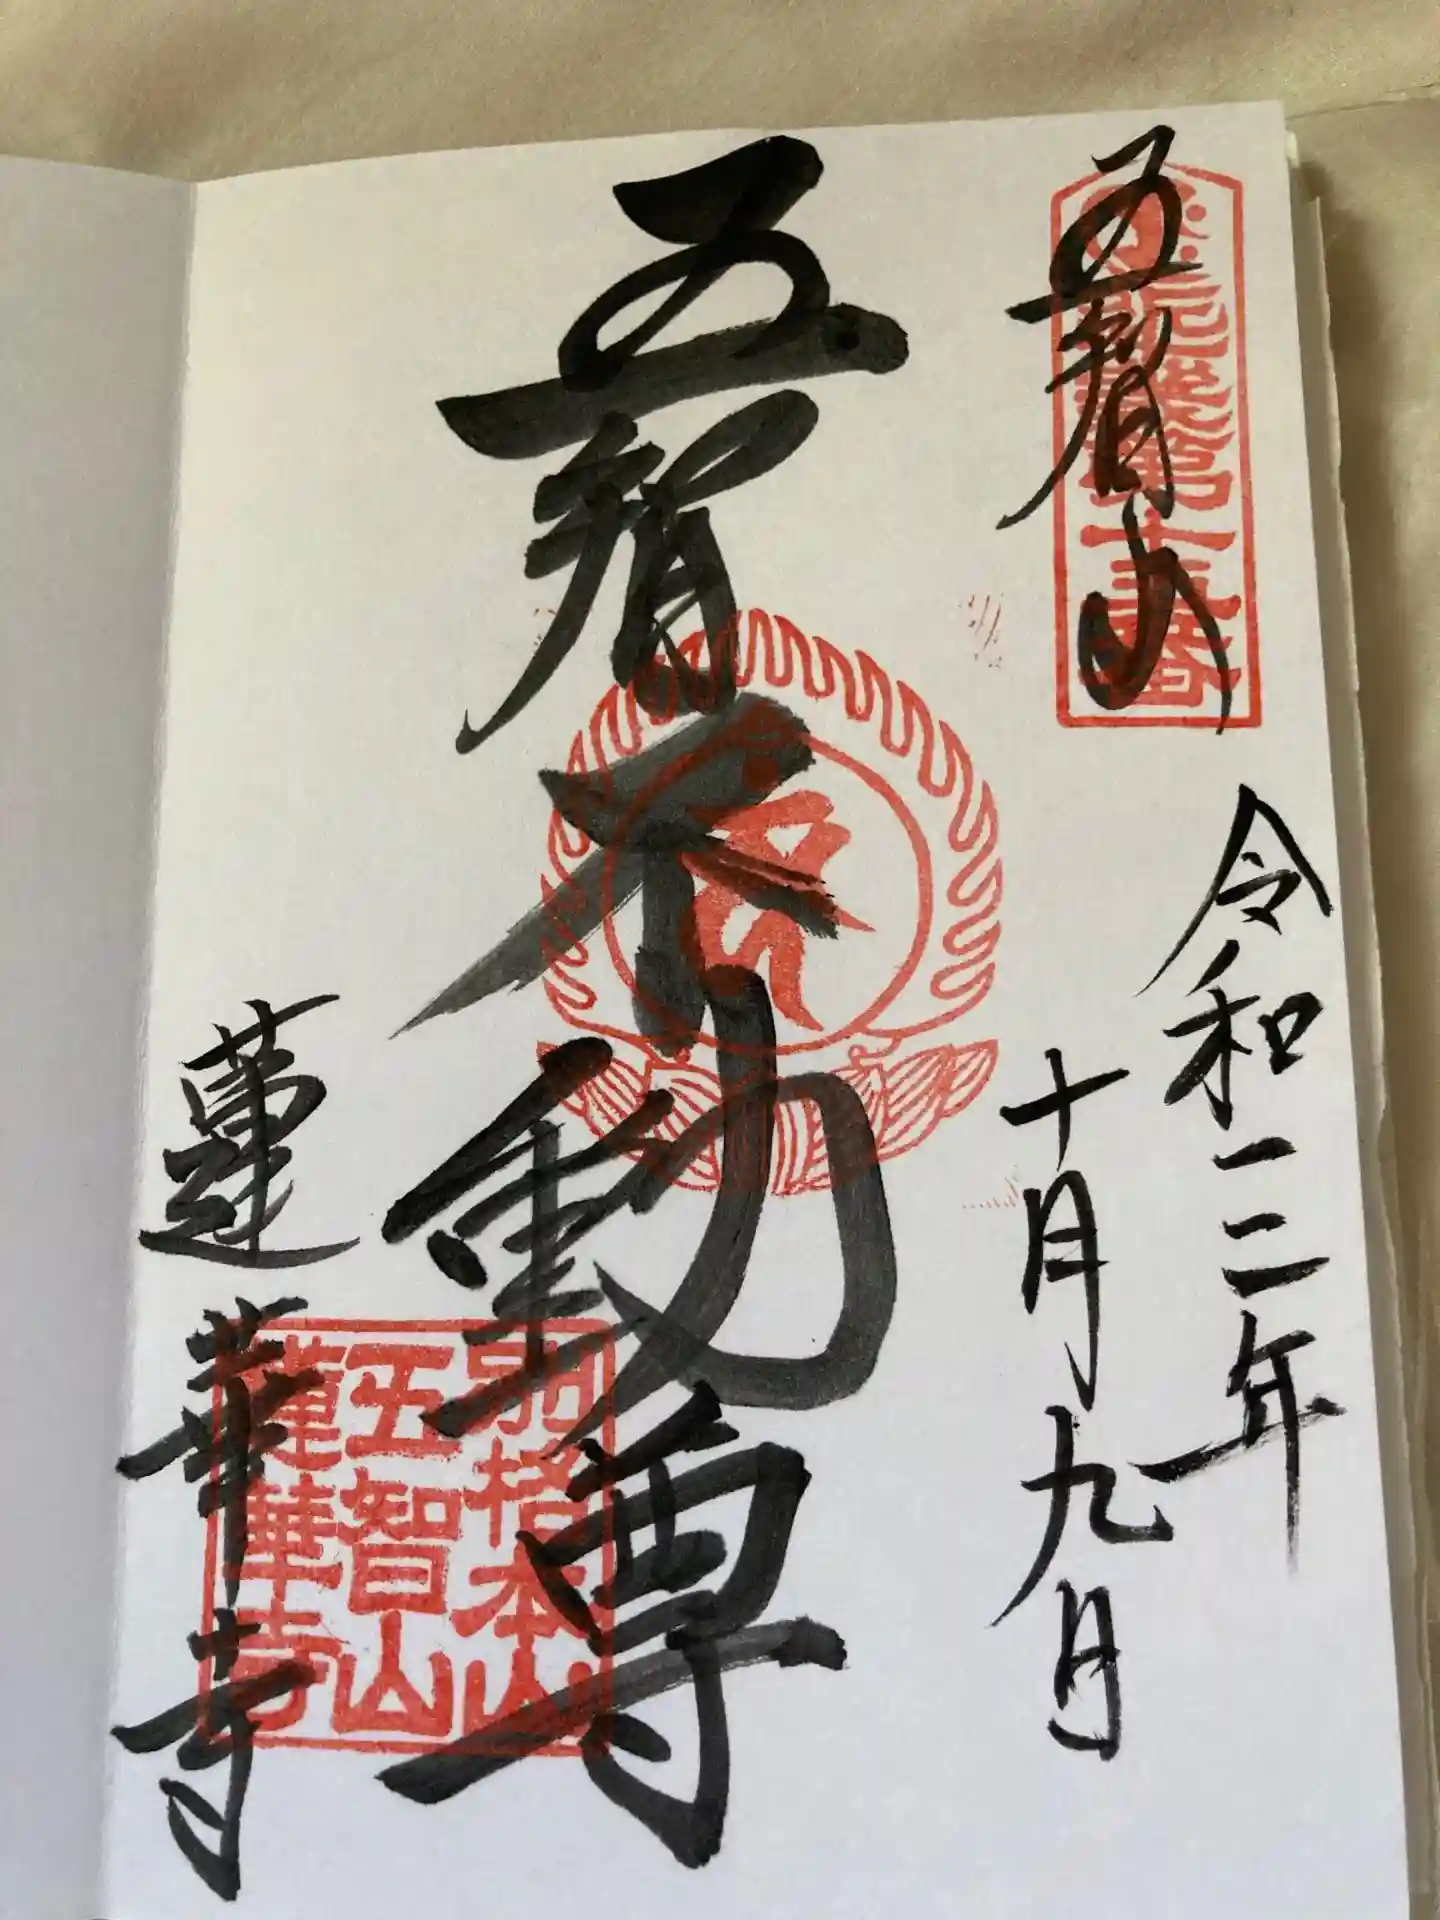 五智山
第十五番
令和三年
十月九日
五智不動尊
蓮華寺
別格本山
五智山
蓮華寺